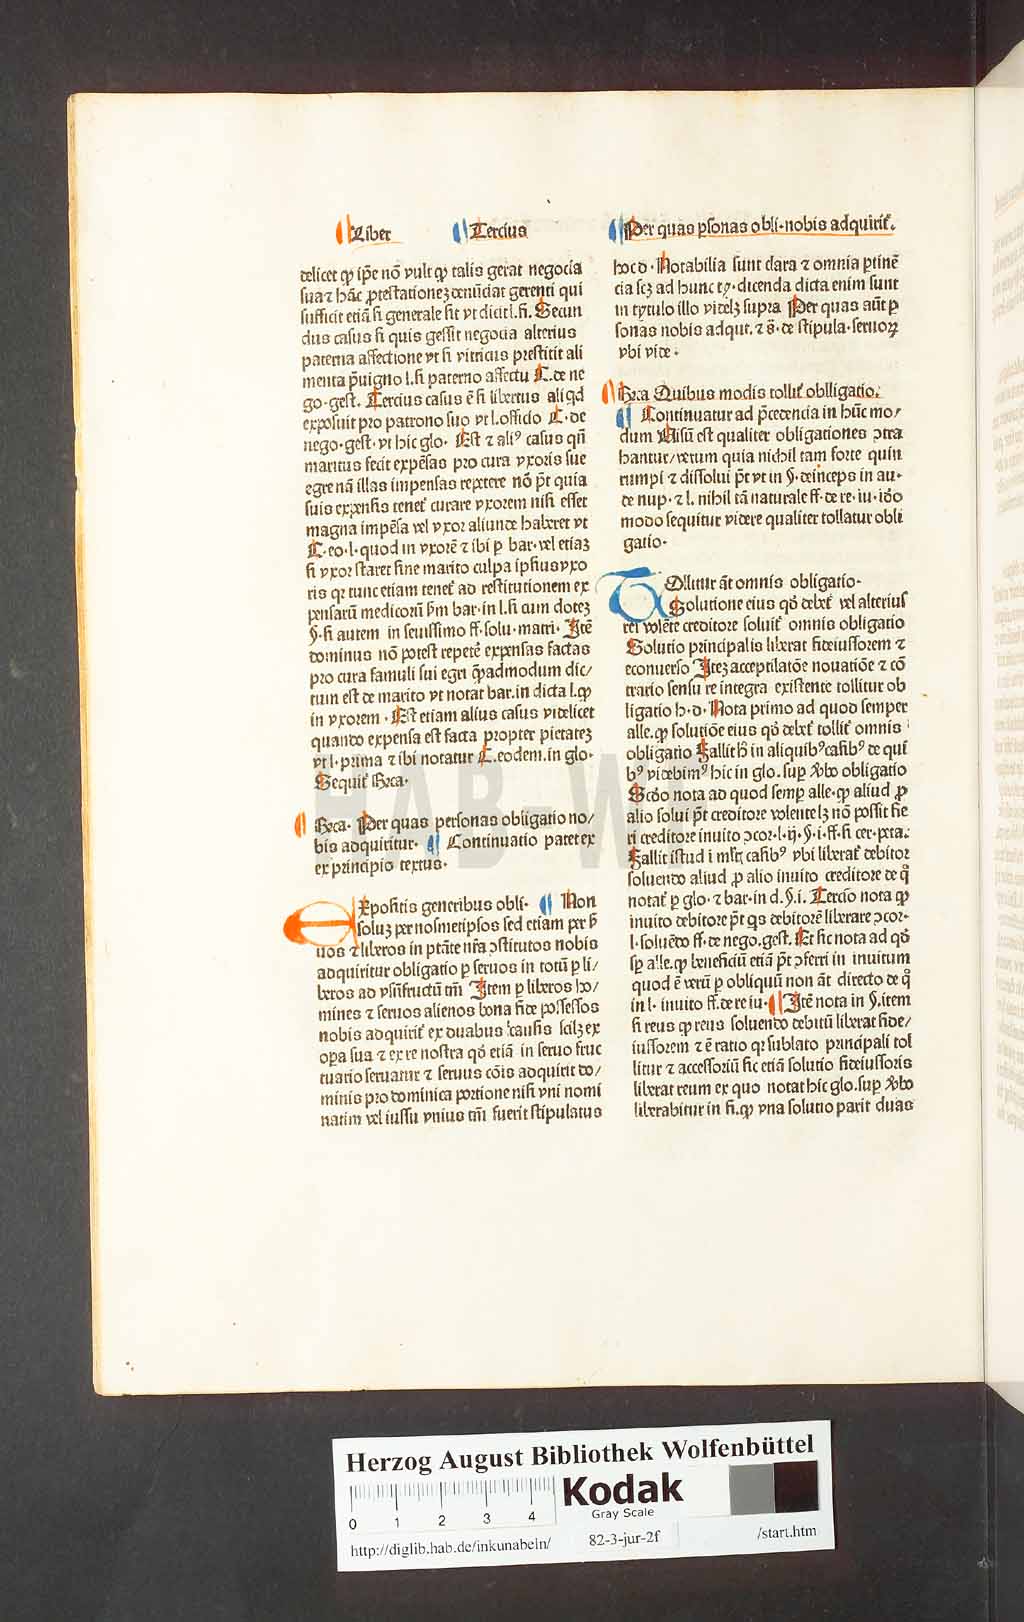 Liber Tercius Per quas psonas obli·nobis adquirit̉.
delicet ꝙ ip̄e nō vult ꝙ talis gerat negocia
sua ⁊ hāc ꝓtestationeꝫ denūciat gerenti qui
sufficit etiā si generale sit vt dicit l.fi. Secun
dus casus si quis gessit negocia alterius
paterna affectione vt si vitricus prestitit ali
menta p̄uigno l.si paterno affectu C.de ne
go·gest. Tercius casus ē si libertus aliqd
exposuit pro patrono suo vt l.officio C·de
nego·gest·vt hic glo· Est ⁊ ali⁹ casus qn̄
maritus fecit expēsas pro cura vxoris sue
egre nā illas impensas repetere nō p̄t quia
suis expensis tenet̉ curare vxorem nisi esset
magna impēsa vel vxor aliunde haberet vt
C·eo·l·quod in vxorē ⁊ ibi ꝑ bar·vel etiaꝫ
si vxor staret sine marito culpa ipsius vxo
ris qꝛ tunc etiam tenet̉ ad restitutionem ex
pensarū medicorū ẜm bar·in l.si cum doteꝫ
§·si autem in seuissimo ff·solu·matri· Itē
dominus nō potest repetē expensas factas
pro cura famuli sui egri q̄admodum dic/
tum est de marito vt notat bar.in dicta l.ꝙ
in vxorem · Est etiam alius casus videlicet
quando expensa est facta propter pietateꝫ
vt l·prima ⁊ ibi notatur C.eodem.in glo·
Sequit̉ Brca·
Brca· Per quas personas obligatio no/
bis adquiritur· Continuatio patet ex
ex principio textus·
Expositis generibus obli· Non
soluꝫ per nosmetipsos sed etiam per ẜ
uos ⁊ liberos in ptāte nr̄a ↄstitutos nobis
adquiritur obligatio ꝑ seruos in totū ꝑ li/
beros ad vsūfructū tm̄ Item ꝑ liberos ho/
mines ⁊ seruos alienos bona fide possessos
nobis adquirit̉ ex duabus causis scilꝫ ex
oꝑa sua ⁊ ex re nostra qd̄ etiā in seruo fruc
tuario seruatur ⁊ seruus cōis adquirit do/
minis pro dominica portione nisi vni nomi
natim vel iussu vnius tm̄ fuerit stipulatus
hoc d· Notabilia sunt clara ⁊ omnia ꝑtinē
cia sꝫ ad hunc ty·dicenda dicta enim sunt
in tytulo illo videlꝫ supra Per quas aūt ꝑ
sonas nobis adqut. ⁊ ē·de stipula·seruoꝝ
vbi vide·
Brca Quibus modis tollit̉ oblligatio·
Continuatur ad p̄cedencia in hūc mo/
dum Visū est qualiter obligationes ↄtra
hantur/verum quia nichil tam forte quin
rumpi ⁊ dissolui p̄t vt in §·deinceps in au·
de nup·⁊ l. nihil tā naturale ff·de re·iu·ido
modo sequitur videre qualiter tollatur obli
gatio·
Tollitur āt omnis obligatio·
Solutione eius qd̄ debet̉ vel alterius
rei volēte creditore soluit̉ omnis obligatio
Solutio principalis liberat fideiussorem ⁊
econuerso Iteꝫ acceptilatōe nouatiōe ⁊ cō
trario sensu re integra existente tollitur ob
ligatio h·d· Nota primo ad quod semper
alle.ꝙ solutiōe eius qd̄ debet̉ tollit̉ omnis
obligatio Fallit hͦ in aliquib⁹ casib⁹ de qui
b⁹ videbim⁹ hic in glo.suꝑ ẜbo obligatio
Scdo nota ad quod semꝑ alle·ꝙ aliud ꝓ
alio solui p̄t creditore volente lꝫ nō possit fie
ri creditore inuito ↄcor·l·ij·§·i·ff·si cer·peta:
Fallit istud i mltꝭ casib⁹ vbi liberat̉ debitor
soluendo aliud ꝓ alio inuito creditore de ꝗ
notat̉ ꝑ glo·⁊ bar·in d.§.i. Tercio nota ꝙ
inuito debitore p̄t qs debitorē liberare ↄcor·
l·soluēdo ff·de nego.gest. Et sic nota ad qd̄
sꝑ alle.ꝙ beneficiū etiā p̄t ↄferri in inuitum
quod ē verū ꝑ obliquū non āt directo de ꝗ
in l· inuito ff.de re iu· Itē nota in §.item
si reus ꝙ reus soluendo debitū liberat fide/
iussorem ⁊ ē ratio qꝛ sublato principali tol
litur ⁊ accessoriū sic etiā solutio fideiussoris
liberat reum ex quo notat hic glo.suꝑ ẜbo
liberabitur in fi.ꝙ vna solutio parit duas
HAB-WF
Herzog August Bibliothek Wolfenbüttel
Kodak
Gray Scale
0 1 2 3 4
http://diglib.hab.de/inkunabeln/ 82-3-jur-2f /start.htm